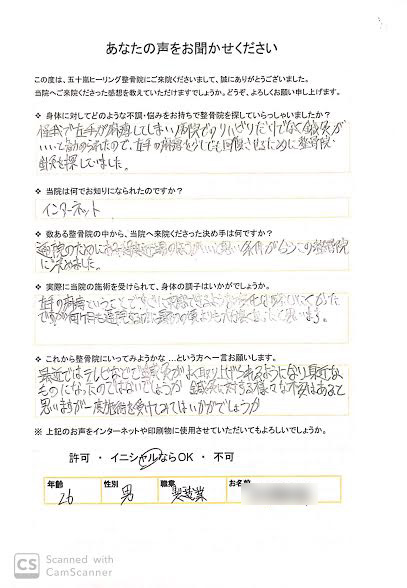 あなたの声をお聞かせください
この度は、五十嵐ヒーリング整骨院にご来院くださいまして、誠にありがとうございました。
当院へご来院くださった感想を教えていただけますでしょうか。どうぞ、よろしくお願い申し上げます。
❖ 身体に対してどのような不調・悩みをお持ちで整骨院を探していらっしゃいましたか？
怪我で左手が麻痺してしまい病院でのリハビリだけでなく鍼灸が
いいと勧められたので、左手の麻痺を少しでも回復させるために整骨院・
鍼灸を探していました。
❖ 当院は何でお知りになられたのですか？
インターネット
❖ 数ある整骨院の中から、当院へ来院くださった決め手は何ですか？
通院のために
に決めました。
❖ 実際に当院の施術を受けられて、身体の調子はいかがでしょうか。
左手の麻痺ということで
ですが何ヶ月も通院するうちに
❖ これから整骨院にいってみようかな …という方へ一言お願いします。
最近ではテレビなどで鍼灸がよく取り上げられるようになり身近な
ものになったのではないでしょうか 鍼灸に対する様々な不安はあると
思いますが一度施術を受けてみてはいかがでしょうか
※ 上記のお声をインターネットや印刷物に使用させていただいてもよろしいでしょうか。
許可 ・ イニシャルならOK ・ 不可
年齢 性別 職業 お名前
26 男 製造業
CS Scanned with
CamScanner